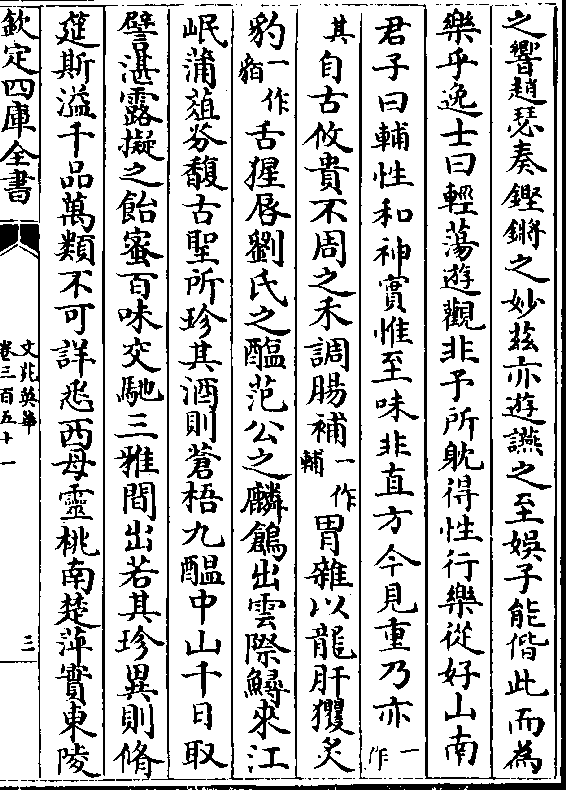 之響趙瑟奏鏗鏘之妙兹亦遊讌之至娛子能偕此而為
樂乎逸士曰輕蕩遊觀非予所躭得性行樂從好山南
君子曰輔性和神實惟至味非直方今見重乃亦一作
其自古攸貴不周之禾調腸補一作輔胃雜以龍肝玃炙
豹一作貊舌猩唇劉氏之醢范公之麟鶬出雲際鱘來江
岷蒲葅芬馥古聖所珍其酒則蒼梧九醖中山千日取
譬湛露擬之飴蜜百味交馳三雅間出若其珍異則脩
莚斯溢千品萬類不可詳悉西母靈桃南楚萍實東陵
欽定四庫全書
文苑英華
卷三百五十一
三